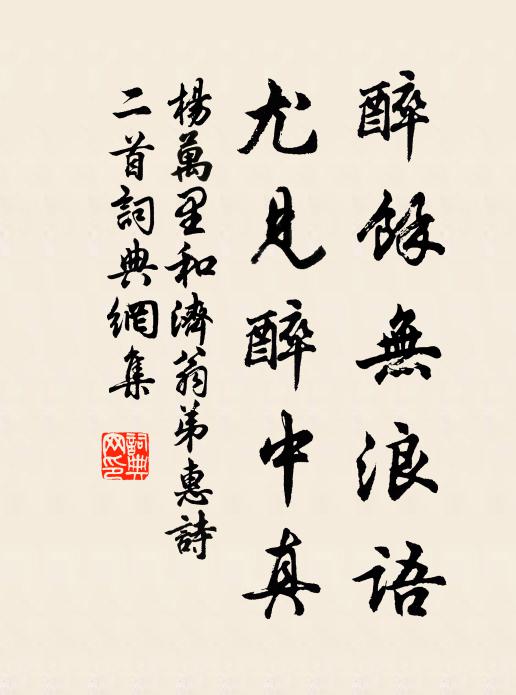 醉餘無浪語
尤見醉中真
楊萬里和濟翁弟惠詩
二首詞典網集
詞典
网印